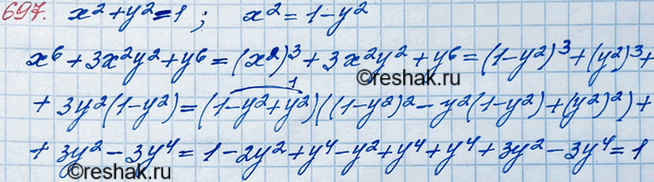 697. x²+y²=1; x²=1-y²
x⁶+3x²y²+y⁶=(x²)³+3x²y²+y⁶=(1-y²)³+(y²)³+
©reshak.ru
1
+3y²(1-y²)=(1-y²+y²)((1-y²)²-y²(1-y²)+(y²)²)+
+3y²-3y⁴=1-2y²+y⁴-y²+y⁴+y⁴+3y²-3y⁴=1
©reshak.ru